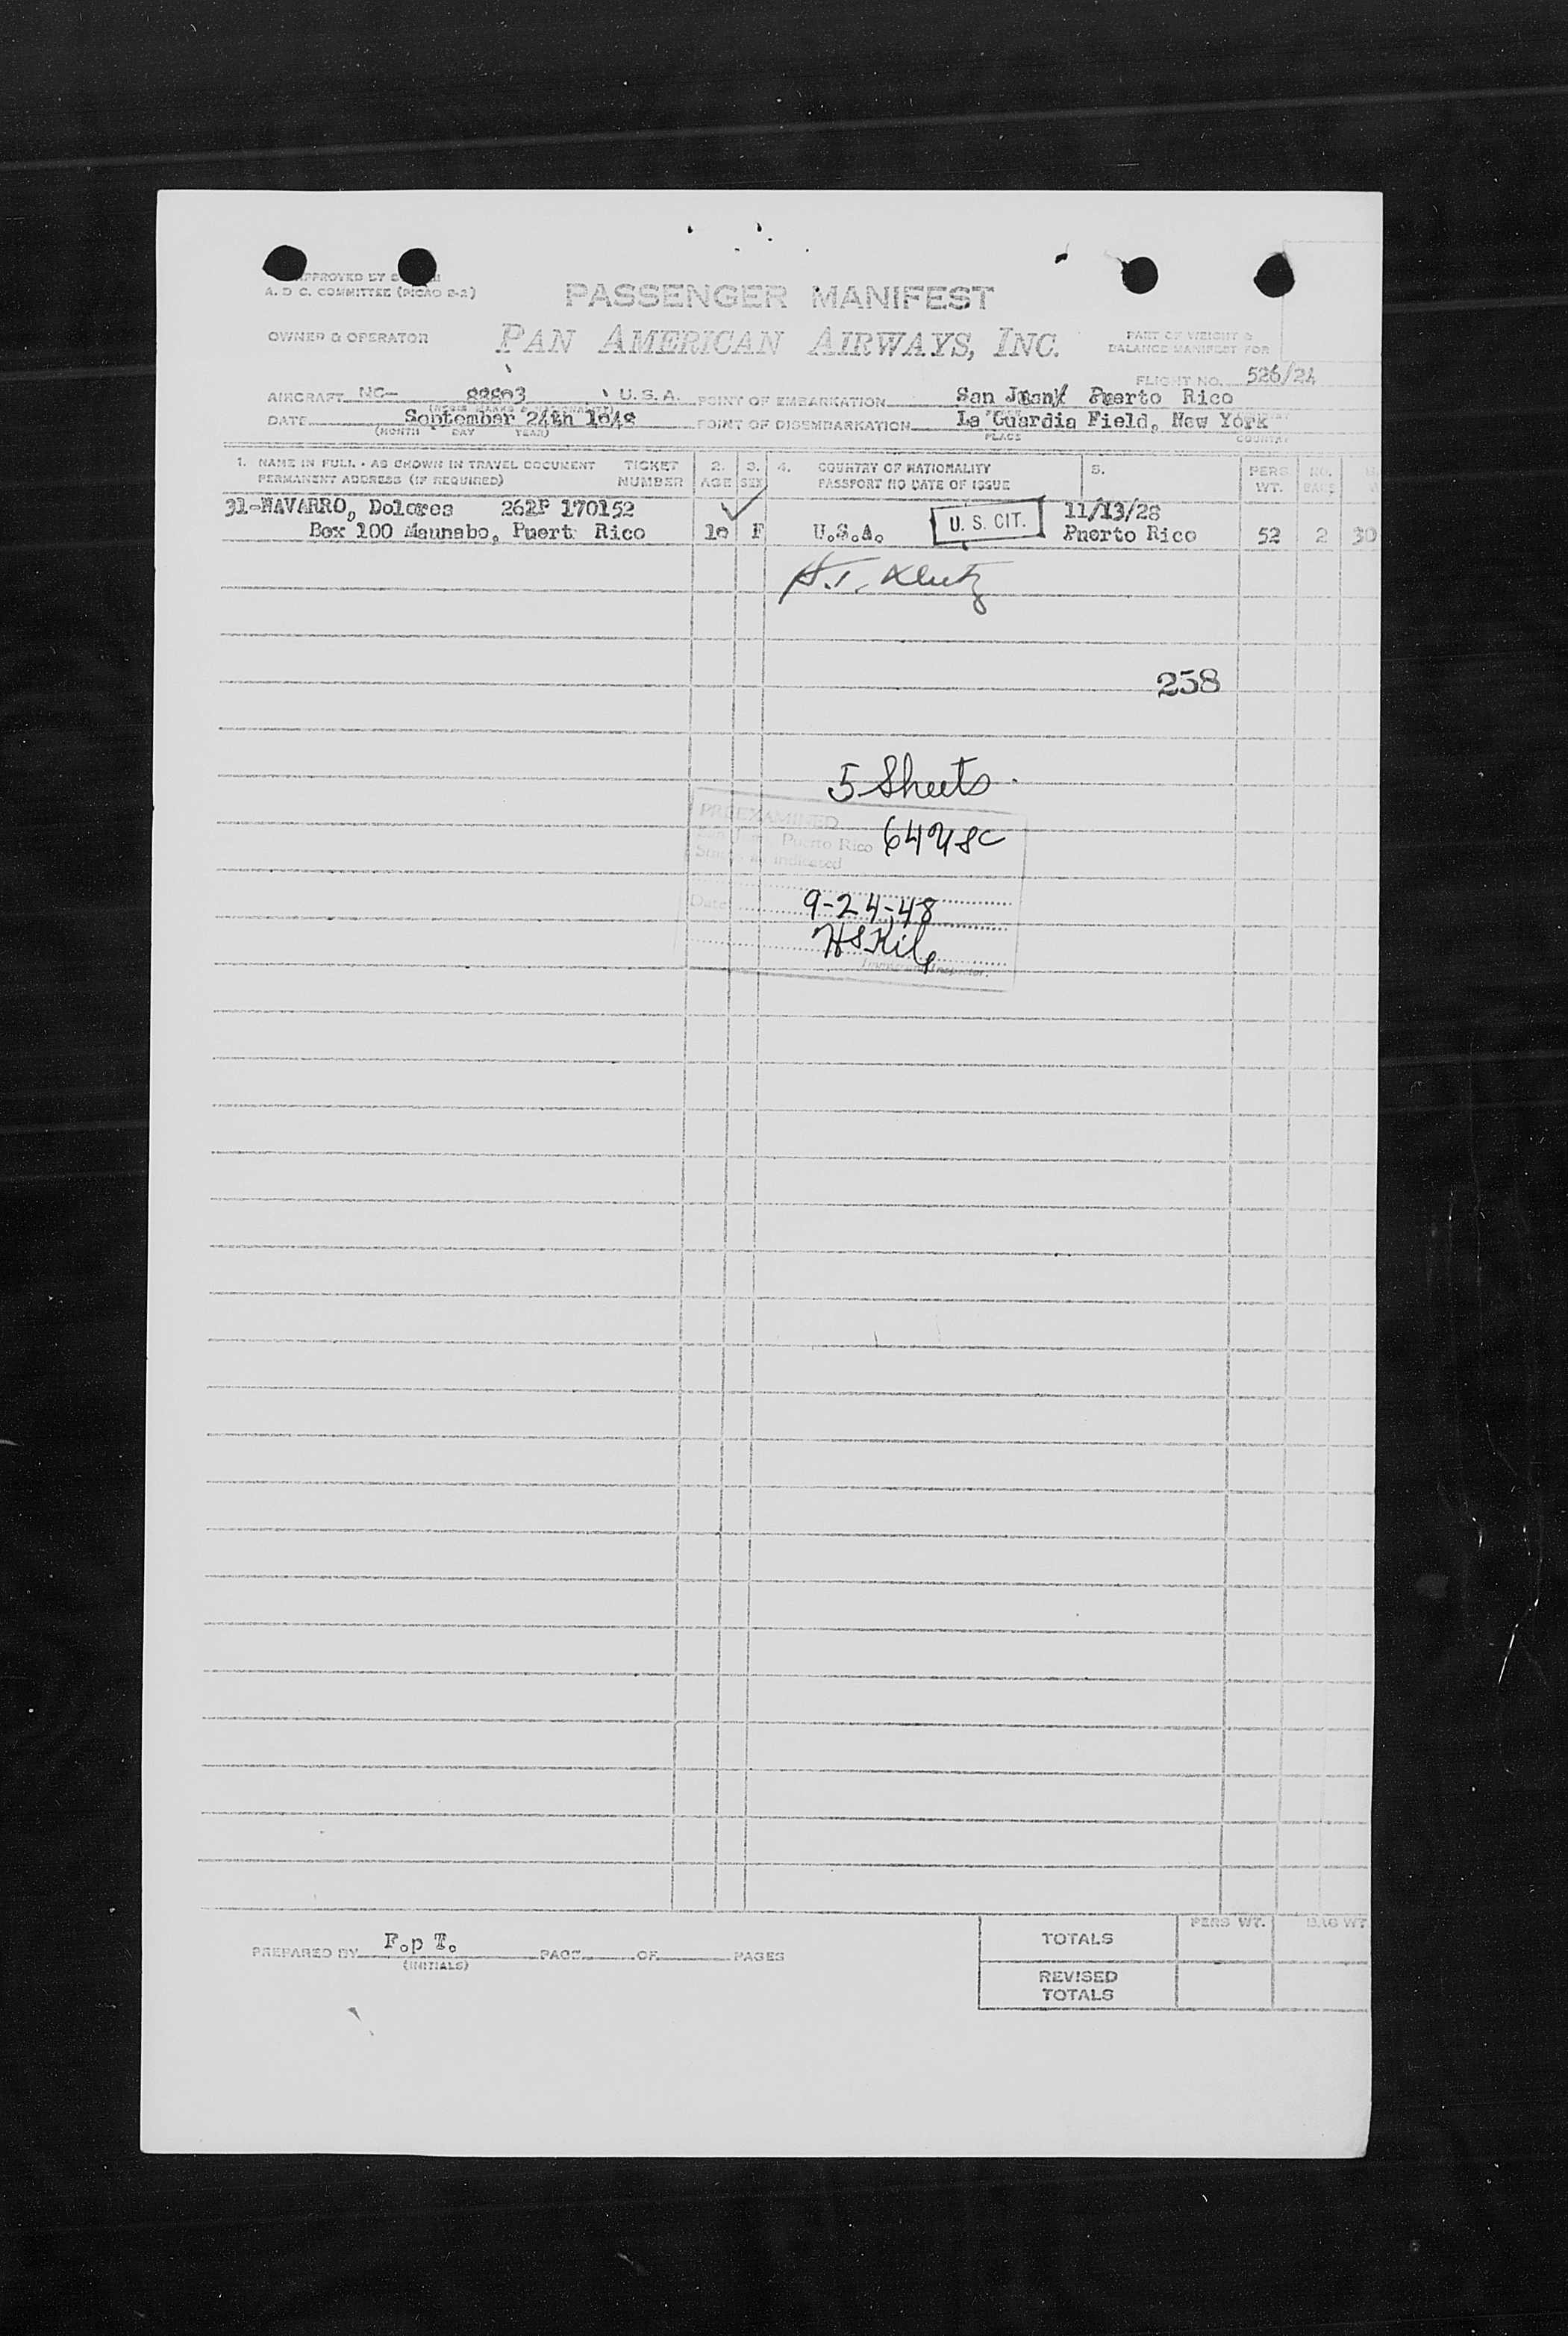 APPROVED BY
A. D C. COMMITTEE (PICAO E-2)
PASSENGER MANIFEST
OWNER & OPERATOR
PAN AMERICAN AIRWAYS, INC.
PART OF WEIGHT &
BALANCE MANIFEST FOR
FLIGHT NO. 526/24
AIRCRAFT NC- 88803 U.S.A. POINT OF EMBARKATION San Juan Puerto Rico
DATE September 24th 1948 POINT OF DISEMBARKATION La Guardia Field, New York
(MONTH DAY YEAR) PLACE COUNTRY
1. NAME IN FULL - AS SHOWN IN TRAVEL DOCUMENT TICKET 2. 3. 4. COUNTRY OF NATIONALITY 5. PERS NO.
PERMANENT ADDRESS (IF REQUIRED) NUMBER AGE SEX PASSPORT NO DATE OF ISSUE WT. BAGS
31-NAVARRO, Dolores 262P 170152 11/13/28
Box 100 Maunabo, Puert Rico F U.S.A. U. S. CIT. Puerto Rico 52 2 30
258
5 Sheets
PREEXAMINED
Puerto Rico 64 USC
indicated
Date 9-24-48
Immigrant Inspector.
PERS WT. BAG WT
PREPARED BY F.p T. PAGE OF PAGES TOTALS
(INITIALS)
REVISED
TOTALS